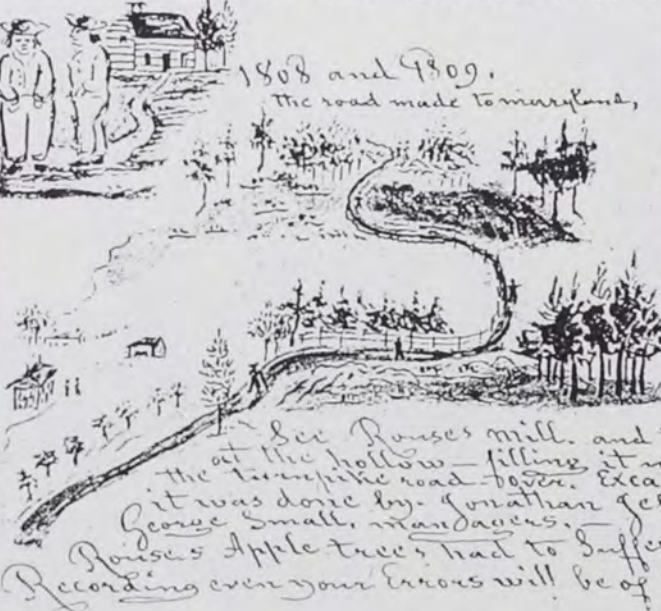 1808 and 1809.
the road made to marryland,
See Rouses mill. and
at the hollow — filling it
the turnpike road over. Exca
it was done by. Jonathan Je
George Small, mandagers. —
Rouses Apple trees had to Suffer
Recording even your Errors will be of